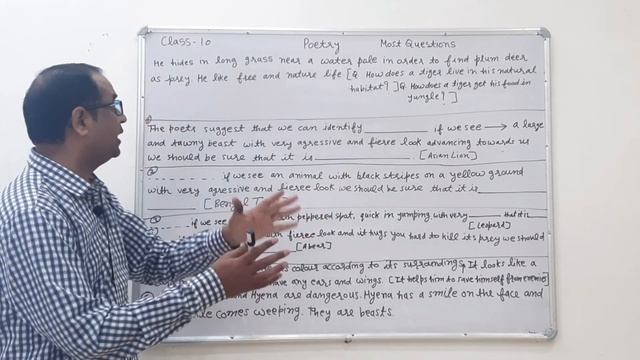 Class-10 Poetry Most Questions
He hides in long grass near a water pole in order to find plum deer
as prey. He like free and nature life [Q. How does a tiger live in his natural
habitat? ] Q. How does a tiger get his food in
yungle? ]
The poets suggest that we can identify ________ if we see → a large
and tawny beast with very agressive and fierce look advancing towards us
we should be sure that it is ________. [Asian Lion]
② --------. if we see an animal with black stripes on a yellow ground
with very agressive and fierce look we should be sure that it is ________
[Bengal
③ ------. if we see peppered spot, quick in jumping with very ____ that it is
[Leopard]
fierce look and it hugs you hard to kill it's prey we should
[A bear]
colour according to its surrandings, It looks like a
have any ears and wings. [It helps him to save himself from enemies]
and Hyena are dangerous. Hyena has a smile on the face and
comes weeping. They are beasts.